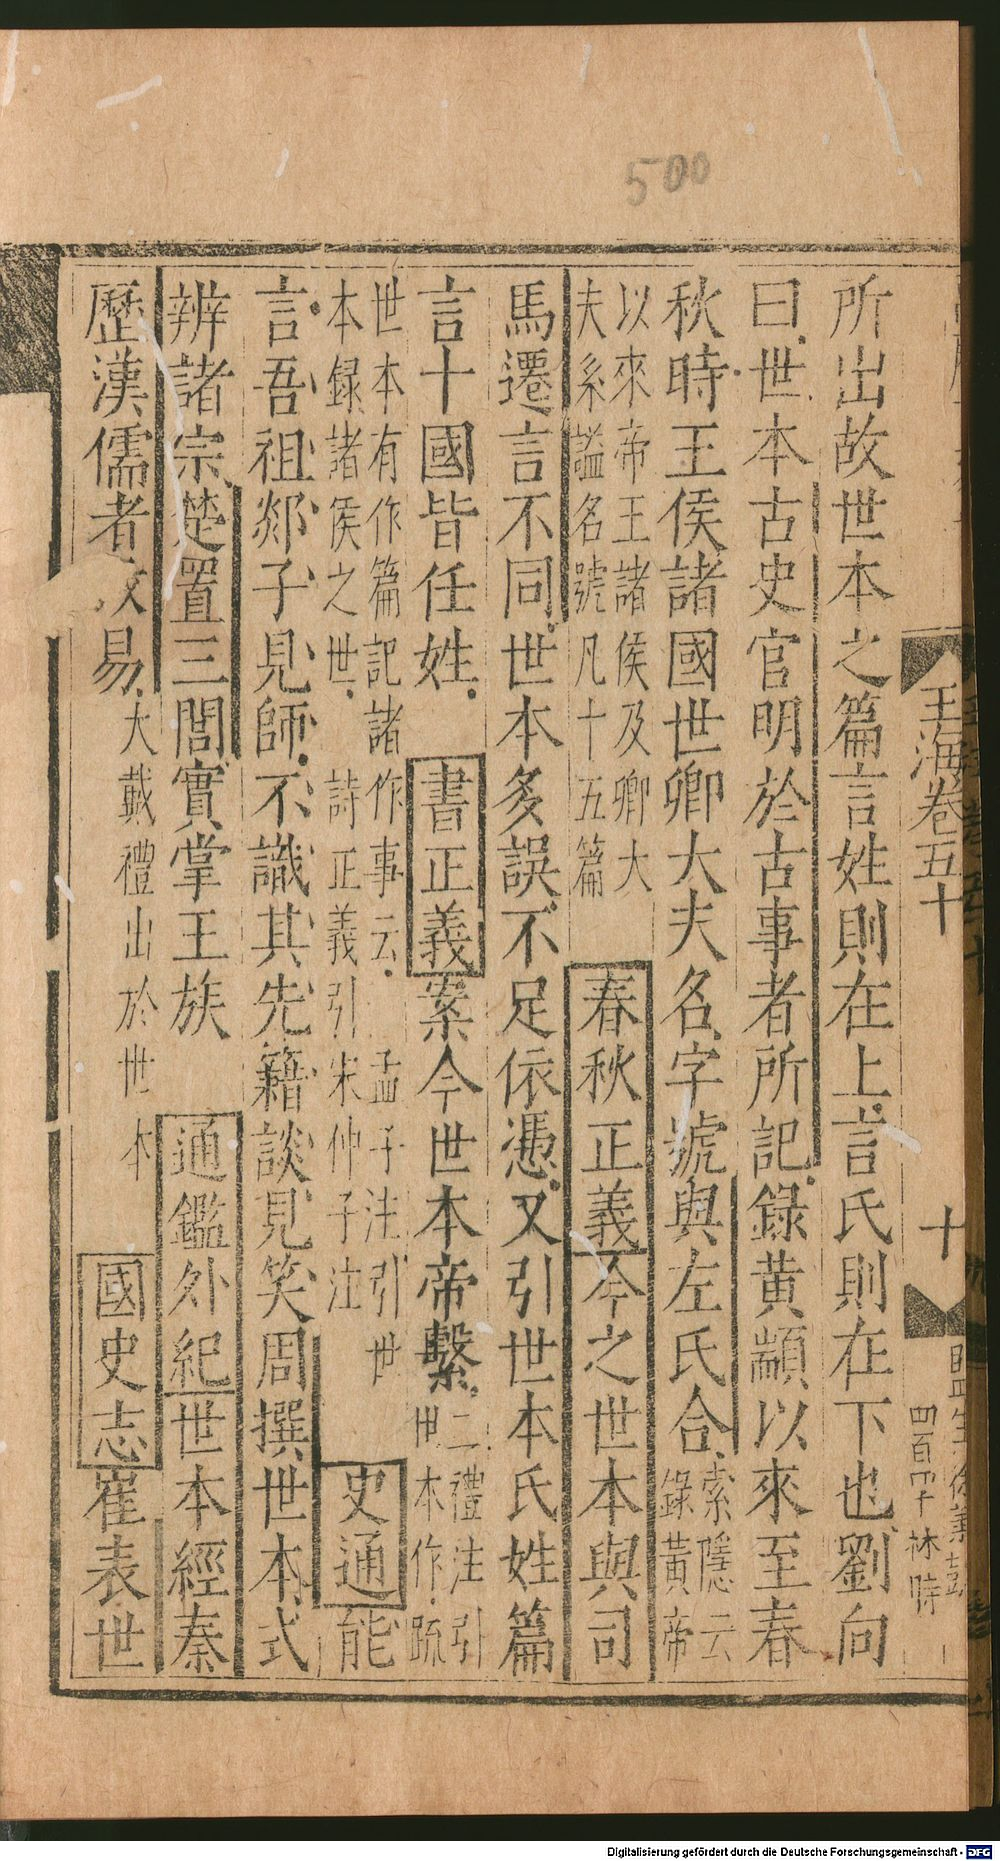 500
所出故世本之篇言姓則在上言氏則在下也劉向
曰世本古史官明於古事者所記錄黄顓以來至春
秋時王侯諸國世卿大夫名字號與左氏合索隱云
錄黃帝
以來帝王諸侯及卿大
夫系謚名號凡十五篇
春秋正義今之世本與司
馬遷言不同世本多誤不足依憑又引世本氏姓篇
言十國皆任姓 書正義案今世本帝繫二禮注引
世本作疏
世本有作篇記諸作事云 孟子注引世
本録諸侯之世 詩正義引宋仲子注
史通能
言吾祖郯子見師不識其先籍談見笑周撰世本式
辨諸宗楚置三閭實掌王族 通鑑外紀世本經秦
歷漢儒者改易大戴禮出於世本 國史志崔表世
玉海卷五十
十
四百四十 林時
Digitalisierung gefördert durch die Deutsche Forschungsgemeinschaft - DFG